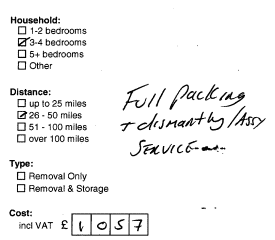 Household:
☐ 1-2 bedrooms
☑ 3-4 bedrooms
☐ 5+ bedrooms
☐ Other
Distance:
☐ up to 25 miles
☑ 26 - 50 miles
☐ 51 - 100 miles
☐ over 100 miles
Full packing
+ dismantling / Assy
SERVICE
Type:
☐ Removal Only
☐ Removal & Storage
Cost:
incl VAT £ 1 0 5 7